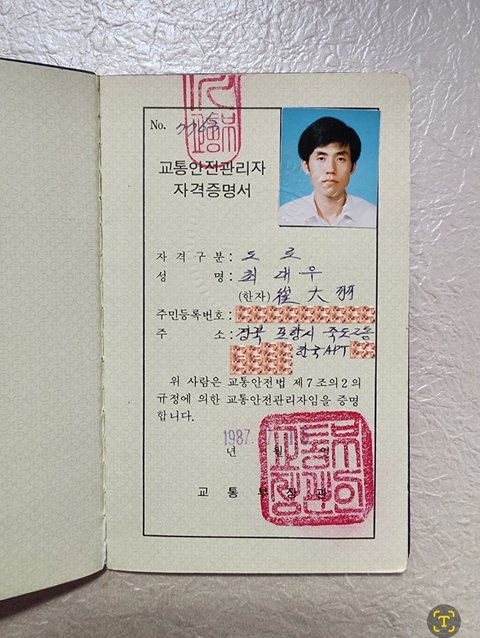 No.
교통안전관리자
자격증명서
자격구분: 도로
성 명: 최대우
(한자) 崔大羽
주민등록번호:
주 소: 경북 포항시 죽도2동
한국APT
위 사람은 교통안전법 제7조의2의
규정에 의한 교통안전관리자임을 증명
합니다.
1987.
년 월 일
교통부장관